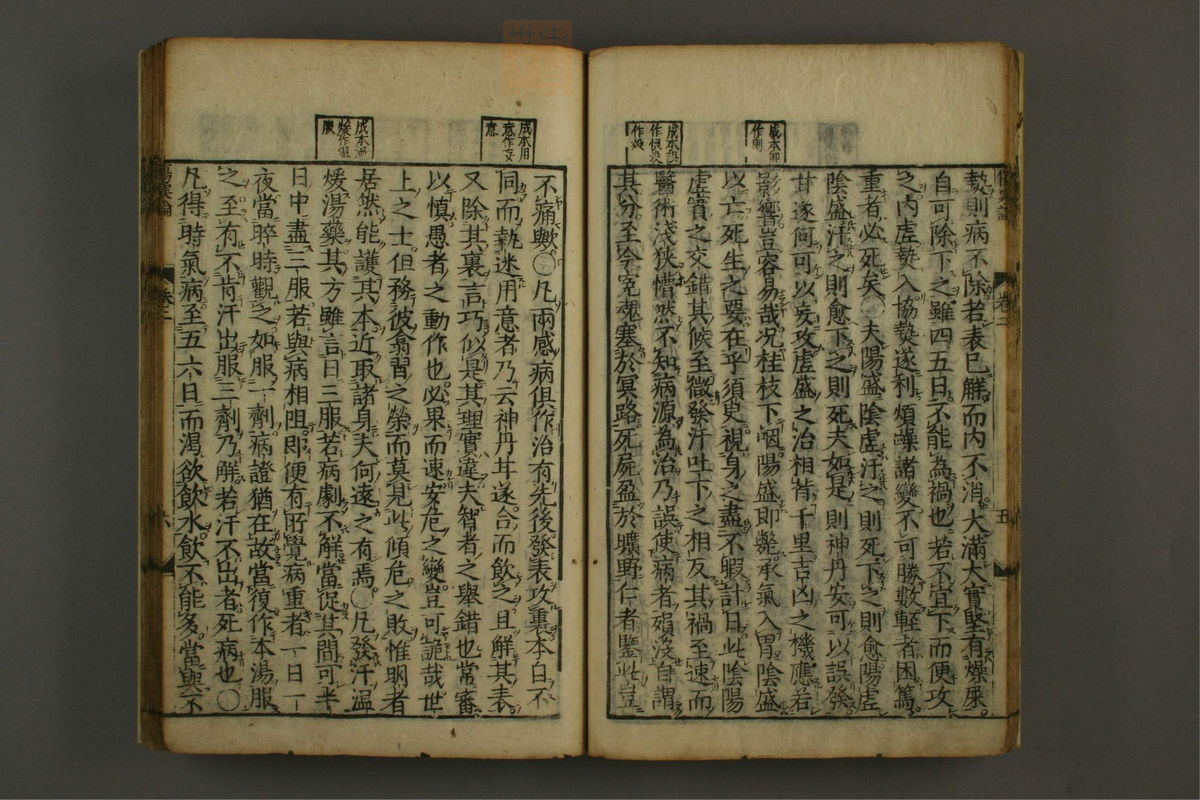 成本即
作則
成本誤
作悞沒
作歿
熱則病不除若表已觧而内不消大滿大實堅有燥屎
自可除下之雖四五日不能為禍也若不宜下而便攻
之内虛熱入協熱遂利煩躁諸變不可勝數軽者困篤
重者必死矣〇夫陽盛陰虛汗之則死下之則愈陽虛
陰盛汗之則愈下之則死夫如是則神丹安可以誤發
甘遂何可以妄攻虛盛之治相背千里吉凶之機應若
影響豈容易哉况桂枝下咽陽盛即斃承氣入胃陰盛
以亡死生之要在乎須臾視身之盡不暇計日此陰陽
虛實之交錯其候至微發汗吐下之相反其禍至速而
醫術淺狹懵然不知病源為治乃誤使病者殞沒自謂
其分至今冤魂塞於冥路死屍盈於曠野仁者鑒此豈
卷二
五
成本用
意作文
意
成本温
煖作温
煖
不痛歟〇凡兩感病俱作治有先後發表攻裏本自不
同而執迷用意者乃云神丹甘遂合而飲之且觧其表
又除其裏言巧似是其理實違夫智者之舉錯也常審
以慎愚者之動作也必果而速安危之變豈可詭哉世
上之士但務彼翕習之榮而莫見此傾危之敗惟明者
居然能護其本近取諸身夫何遠之有焉〇凡發汗温
煖湯藥其方雖言日三服若病劇不解當促其間可半
日中盡三服若與病相阻即便有所覺病重者一日一
夜當晬時觀之如服一劑病證猶在故當復作本湯服
之至有不肯汗出服三劑乃解若汗不出者死病也〇
凡得時氣病至五六日而渴欲飲水飲不能多當與不
卷二
六